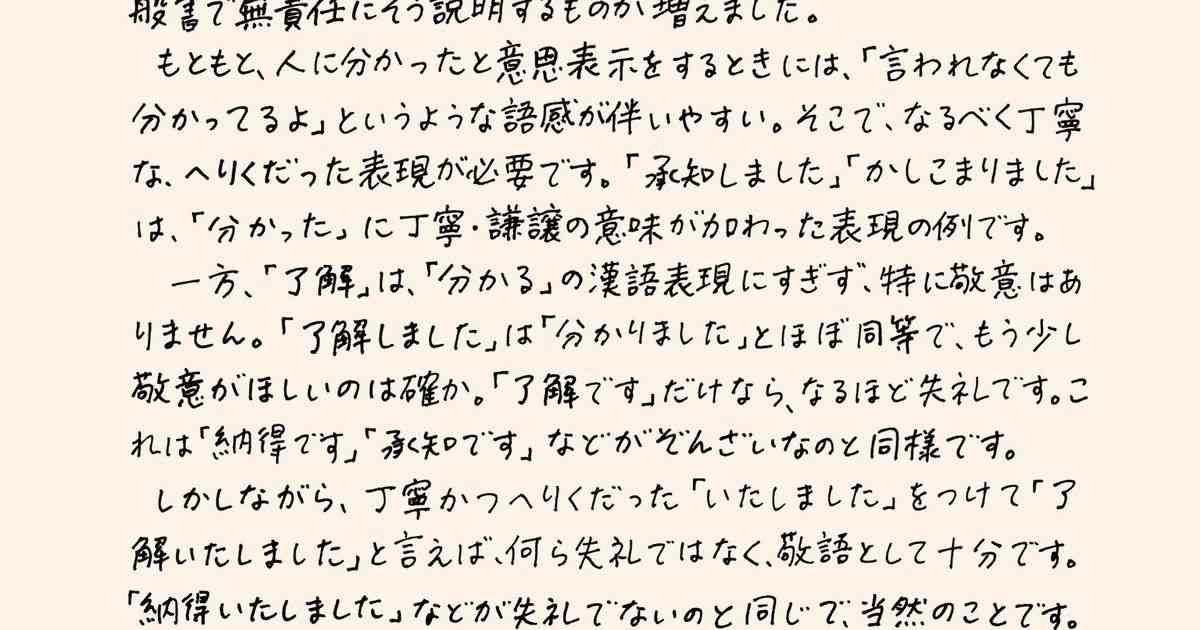 般書で無責任にそう説明するものが増えました。
もともと、人に分かったと意思表示をするときには、「言われなくても
分かってるよ」というような語感が伴いやすい。そこで、なるべく丁寧
な、へりくだった表現が必要です。「承知しました」「かしこまりました」
は、「分かった」に丁寧・謙譲の意味が加わった表現の例です。
一方、「了解」は、「分かる」の漢語表現にすぎず、特に敬意はあ
りません。「了解しました」は「分かりました」とほぼ同等で、もう少し
敬意がほしいのは確か。「了解です」だけなら、なるほど失礼です。こ
れは「納得です」「承知です」などがぞんざいなのと同様です。
しかしながら、丁寧かつへりくだった「いたしました」をつけて「了
解いたしました」と言えば、何ら失礼ではなく、敬語として十分です。
「納得いたしました」などが失礼でないのと同じで、当然のことです。